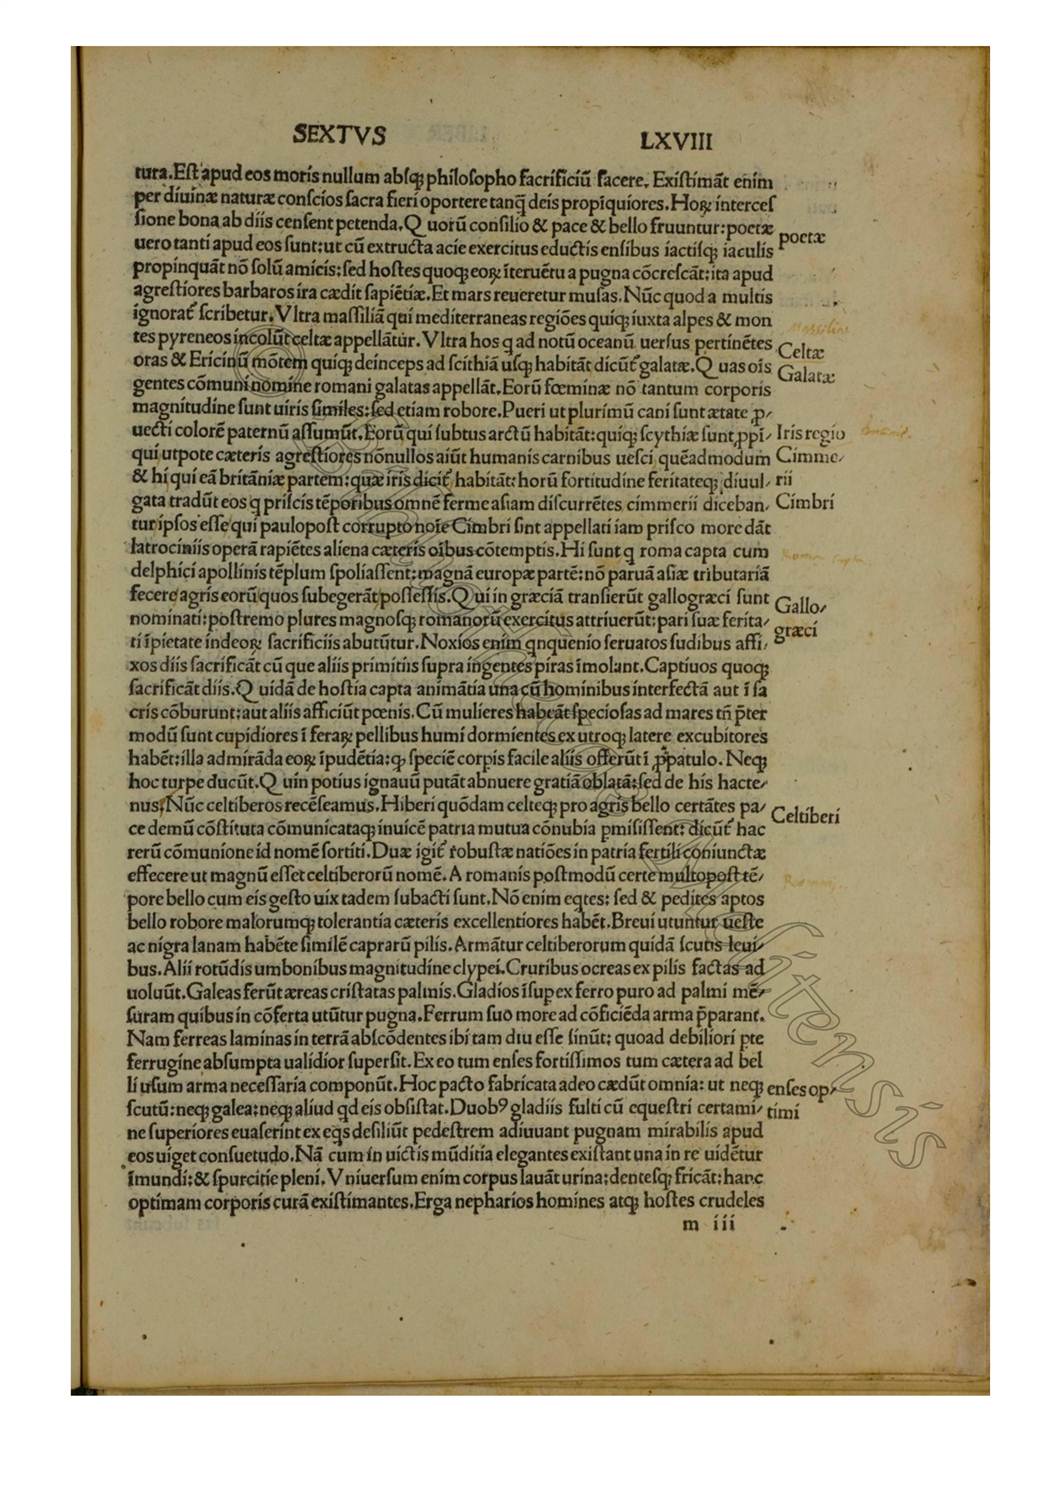 SEXTVS LXVIII
tura.Eſt apud eos moris nullum abſqꝫ philoſopho ſacrificiū facere. Exiſtimāt enim
per diuinæ naturæ conſcios ſacra fieri oportere tanq̄ deis propiquiores.Hoꝝ interceſ
ſione bona ab diis cenſent petenda.Quorū conſilio & pace & bello fruuntur:poetæ
uero tanti apud eos ſunt:ut cū extructa acie exercitus eductis enſibus iactiſqꝫ iaculis
propinquāt nō ſolū amicis:ſed hoſtes quoqꝫ eoꝝ īteruētu a pugna cōcreſcāt:ita apud
agreſtiores barbaros ira cædit ſapiētiæ.Et mars reueretur muſas.Nūc quod a multis
ignorat᷑ ſcribetur.Vltra maſſiliā qui mediterraneas regiōes quiqꝫ iuxta alpes & mon
tes pyreneos incolūt celtæ appellātur.Vltra hos q ad notū oceanū uerſus pertinētes
oras & Ericinū mōtem quiqꝫ deinceps ad ſcithiā uſqꝫ habitāt dicūt᷑ galatæ.Quas oīs
gentes cōmuni nomine romani galatas appellāt.Eorū fœminæ nō tantum corporis
magnitudine ſunt uiris ſimiles:ſed etiam robore.Pueri ut plurimū cani ſunt ætate ꝓ/
uecti colorē paternū aſſumūt.Eorū qui ſubtus arctū habitāt:quiqꝫ ſcythiæ ſunt ꝓpī/
qui utpote cæteris agreſtiores nōnullos aiūt humanis carnibus ueſci quēadmodum
& hi qui eā britāniæ partem:quæ iris dicit᷑ habitāt:horū fortitudine feritateqꝫ diuul/
gata tradūt eos q priſcis tēporibus omnē ferme aſiam diſcurrētes cimmerii diceban/
tur ipſos eſſe qui paulopoſt corrupto noīe Cimbri ſint appellati iam priſco more dāt
latrociniis operā rapiētes aliena cæteris oībus cōtemptis.Hi ſunt q roma capta cum
delphici apollinis tēplum ſpoliaſſent:magnā europæ partē:nō paruā aſiæ tributariā
fecere agris eorū quos ſubegerāt poſſeſſis.Qui in græciā tranſierūt gallogræci ſunt
nominati:poſtremo plures magnoſqꝫ romanorū exercitus attriuerūt:pari ſuæ ferita/
ti īpietate indeoꝝ ſacrificiis abutūtur.Noxios enim qnquenio ſeruatos ſudibus affi/
xos diis ſacrificāt cū que aliis primitiis ſupra ingentes piras īmolant.Captiuos quoqꝫ
ſacrificāt diis.Quidā de hoſtia capta animātia una cū hominibus interfectā aut ī ſa
cris cōburunt:aut aliis afficiūt pœnis.Cū mulieres habeāt ſpecioſas ad mares tn̄ p̄ter
modū ſunt cupidiores ī feraꝝ pellibus humi dormientes ex utroqꝫ latere excubitores
habēt:illa admirāda eoꝝ īpudētia:qꝫ ſpeciē corpis facile aliis offerūt ī ꝓpatulo.Neqꝫ
hoc turpe ducūt.Quin potius ignauū putāt abnuere gratiā oblatā:ſed de his hacte/
nus.Nūc celtiberos recēſeamus.Hiberi quōdam celteqꝫ pro agris bello certātes pa/
ce demū cōſtituta cōmunicataqꝫ inuicē patria mutua cōnubia ꝑmiſiſſent:dicūt᷑ hac
rerū cōmunione id nomē ſortiti.Duæ igit᷑ robuſtæ natiōes in patria fertili coniunctæ
effecere ut magnū eſſet celtiberorū nomē.A romanis poſtmodū certe multopoſt tē/
pore bello cum eis geſto uix tadem ſubacti ſunt.Nō enim eqtes:ſed & pedites aptos
bello robore malorumqꝫ tolerantia cæteris excellentiores habēt.Breui utuntur ueſte
ac nigra lanam habēte ſimilē caprarū pilis.Armātur celtiberorum quidā ſcutis leui/
bus.Alii rotūdis umbonibus magnitudine clypei.Cruribus ocreas ex pilis factas ad
uoluūt.Galeas ferūt æreas criſtatas palmis.Gladios īſup ex ferro puro ad palmi mē/
ſuram quibus in cōferta utūtur pugna.Ferrum ſuo more ad cōficiēda arma p̄parant.
Nam ferreas laminas in terrā abſcōdentes ibi tam diu eſſe ſinūt:quoad debiliori pte
ferrugine abſumpta ualidior ſuperſit.Ex eo tum enſes fortiſſimos tum cætera ad bel
li uſum arma neceſſaria componūt.Hoc pacto fabricata adeo cædūt omnia:ut neqꝫ
ſcutū:neqꝫ galea:neqꝫ aliud qd eis obſiſtat.Duobꝰ gladiis fulti cū equeſtri certami/
ne ſuperiores euaſerint ex eqs deſiliūt pedeſtrem adiuuant pugnam mirabilis apud
eos uiget conſuetudo.Nā cum in uictis mūditia elegantes exiſtant una in re uidētur
īmundi:& ſpurcitie pleni.Vniuerſum enim corpus lauāt urina:denteſqꝫ fricāt:hanc
optimam corporis curā exiſtimantes.Erga nepharios homines atqꝫ hoſtes crudeles
m iii
poetæ
Celtæ
Galatæ
Iris regio
Cimme/
rii
Cimbri
Gallo/
græci
Celtiberi
enſes op/
timi